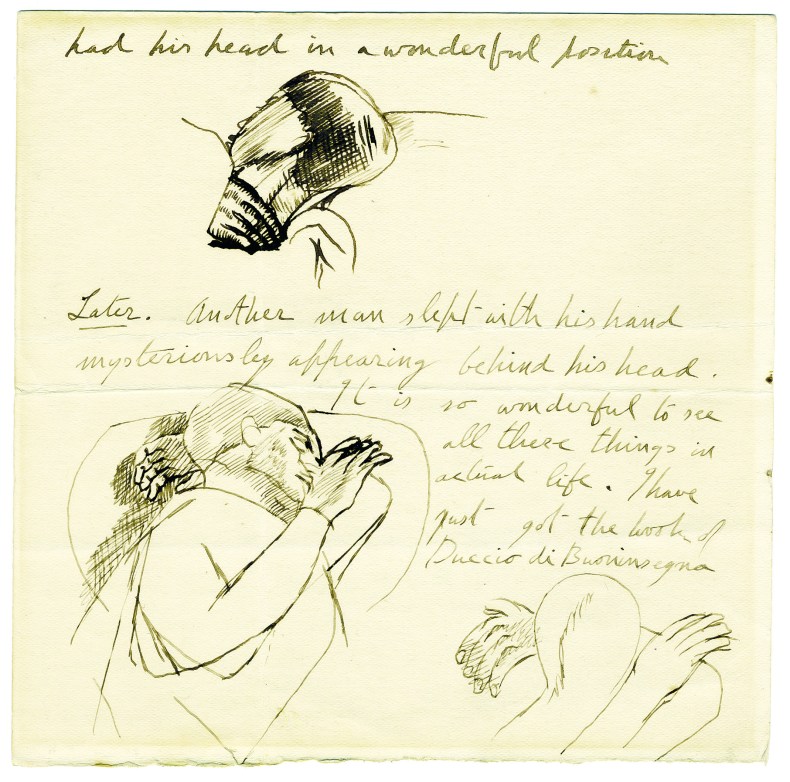 had his head in a wonderful position
Later. Another man slept with his hand
mysteriously appearing behind his head.
It is so wonderful to see
all these things in
actual life. I have
just got the book of
Duccio di Buoninsegna